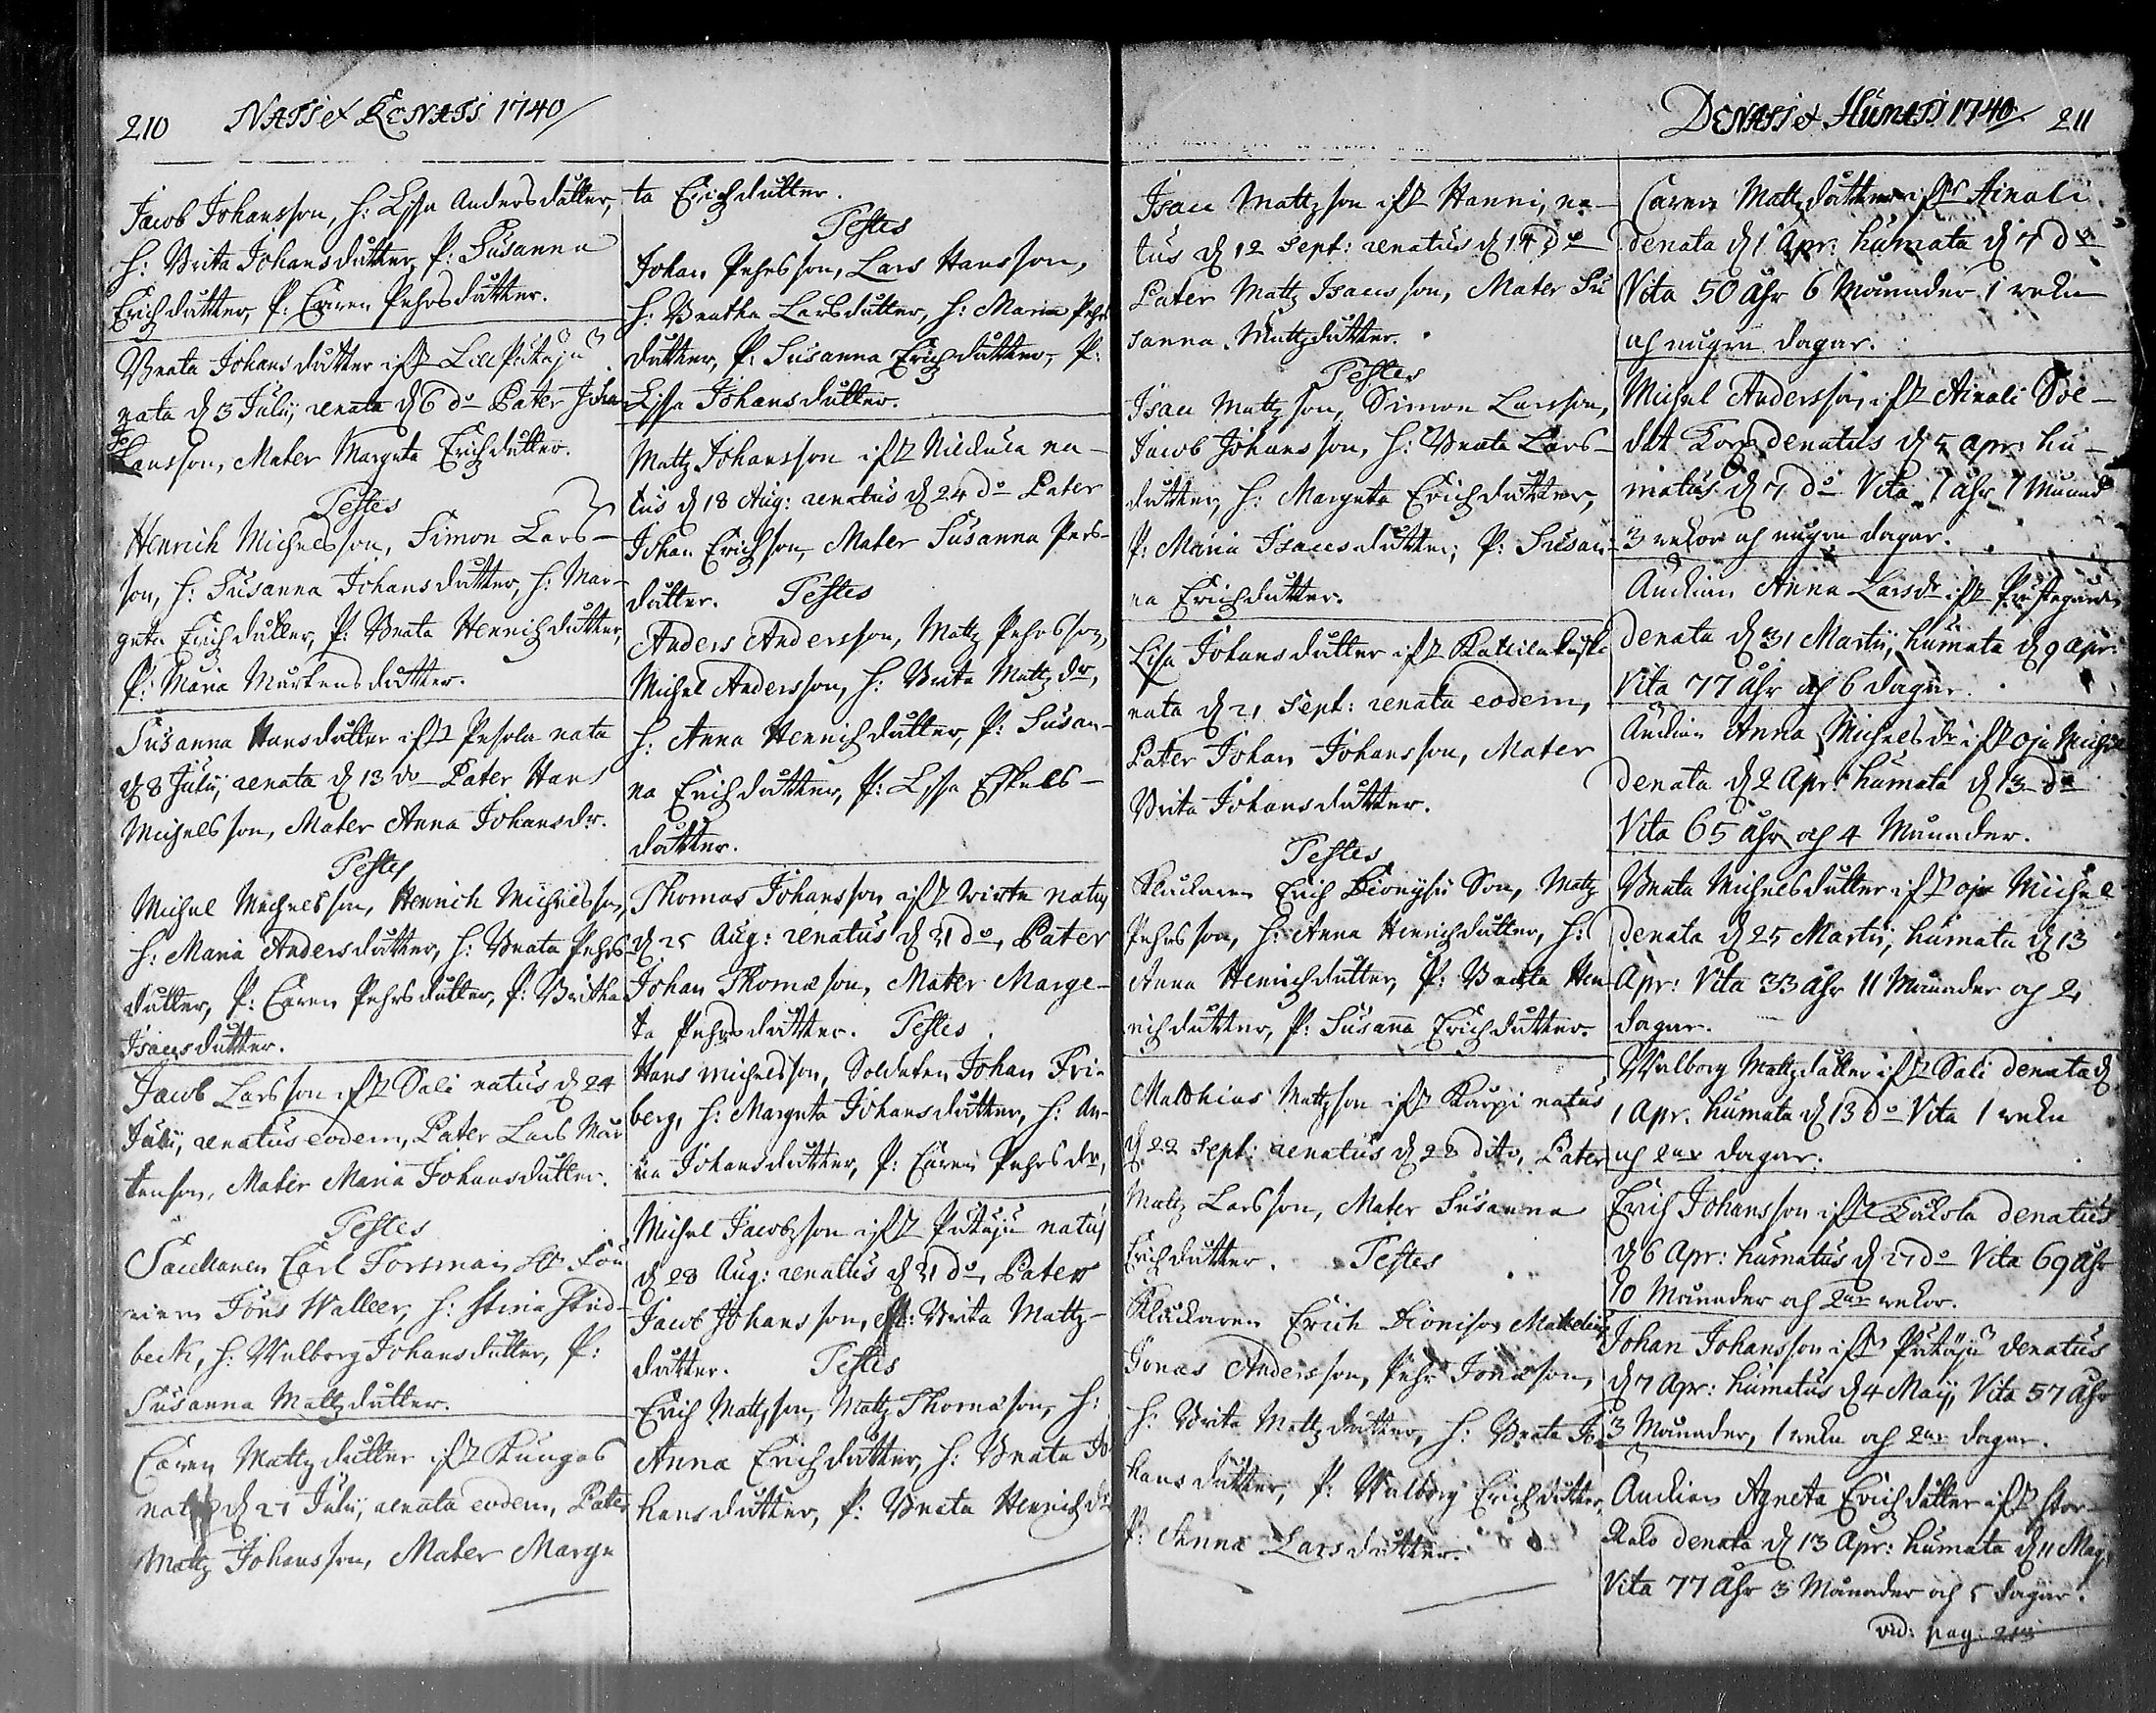 210 NATI et RENATI 1740
Jacob Johansson, h: Lissa Andersdatter,
h: Brita Johansdutter, P: Susanna
Erichdutter, P: Caren Pehrsdutter.
Beata Johansdutter ifr Lillputaju
nata d 3 Julij, renata d 6 do Pater Joha
Hansson, Mater Margeta Erichdutter.
Testes
Henrich Michelsson, Simon Lars-
son, h: Susanna Johansdutter, h: Mar-
geta Erichdutter, P: Beata Henrichdutter,
P: Maria Mårtensdutter.
Susanna Hansdutter ifr Pesola nata
d 8 Julij, renata d 13 do Pater Hans
Michelsson, Mater Anna Johansdr.
Testes
Michel Michelsson, Henrich Michelsson,
h: Maria Andersdutter, h: Beata Pehrs
dutter, P: Caren Pehrsdutter, P: Britha
Isacsdutter.
Jacob Larsson ifr Sali natus d 24
Julij, renatus eodem, Pater Lars Mår
tenson, Mater Maria Johansdutter.
Testes
Sacellanen Carl Forsman,
Jöns Walleer, h: Stina
beck, h: Walborg Johansdutter, P:
Susanna Mattzdutter.
Caren Mattzdutter ifr Kungas
nata d 27 Julij, renata eodem, Pater
Mattz Johansson, Mater Marge
ta Erichdutter.
Testes
Johan Pehrsson, Lars Hansson,
h: Beatha Larsdutter, h: Maria Pehrs
dutter, P: Susanna Erichdutter, P:
Lissa Johansdutter.
Mattz Johansson ifr Niskala na-
tus d 18 Aug: renatus d 24 do Pater
Johan Erichson, Mater Susanna Pers-
dutter. Testes
Anders Andersson, Mattz Pehrsson,
Michel Andersson, h: Brita Mattzdr,
h: Anna Henrichdutter, P: Susan-
na Erichdutter, P: Lissa Eskels-
dutter.
Thomas Johansson ifr Wirta natus
d 25 Aug: renatus d 31 do, Pater
Johan Thomason, Mater Marge-
ta Pehrsdutter. Testes
Hans Michelsson, Soldaten Johan Fri-
berg, h: Margeta Johansdutter, h: An-
na Johansdutter, P: Caren Pehrsdr,
Michel Jacobsson ifr Putaju natus
d 28 Aug: renatus d 31 do, Pater
Jacob Johansson, M: Brita Mattz-
dutter. Testes
Erich Mattzson, Mattz Thomason, h:
Anna Erichdutter, h: Beata Jo
hansdutter, P: Beata Henrichdr
DENATI et HUMATI 1740 211
Isac Mattzson ifr Hanni, na-
tus d 12 Sept: renatus d 14 do
Pater Mattz Isacsson, Mater Su
sanna Mattzdutter.
Testes
Isac Mattzson, Simon Larsson,
Jacob Johansson, h: Beata Lars-
dutter, h: Margeta Erichdutter,
P: Maria Isacsdutter, P: Susan-
na Erichdutter.
Lisa Johansdutter ifr Kattilakoski
nata d 21 Sept: renata eodem,
Pater Johan Johansson, Mater
Brita Johansdutter.
Testes
Klockaren Erich Dionysii Son, Matz
Pehrsson, h: Anna Henrichdutter, h:
Anna Henrichdutter, P: Beata Hen-
richdutter, P: Susanna Erichdutter.
Matthias Mattzson ifr Karpi natus
d 22 Sept: renatus d 28 dito, Pater
Mattz Larsson, Mater Susanna
Erichdutter. Testes
Klockaren Erich Dionisos
Jonas Andersson, Pehr Jonason,
h: Brita Mattzdutter, h: Beata Jo-
hansdutter, P: Walborg Erichdutter,
P: Anna Larsdutter.
Caren Mattzdutter ifr Ainali
denata d 1 Apr: humata d 7 do
Vita 50 åhr 6 Månader 1 weka
och någre dagar.
Michel Andersson, ifr Ainali Sol-
dat denatus d 5 Apr: hu-
matus d 7 do Vita 1 åhr 1 Månad
3 wekor och någre dagar.
Änckian Anna Larsdr ifr Prästegården
denata d 31 Martij, humata d 9 Apr:
Vita 77 åhr och 6 dagar.
Änckian Anna Michelsdr ifr Oja Michel
denata d 2 Apr: humata d 13 do
Vita 65 åhr och 4 Månader.
Beata Michelsdutter ifr Oja Michel
denata d 25 Martij, humata d 13
Apr: Vita 33 åhr 11 Månader och 21
dagar.
Walborg Mattzdutter ifr Sali denata d
1 Apr. humata d 13 do Vita 1 weka
och 2ne dagar.
Erich Johansson ifr denatus
d 6 Apr: humatus d 27 do Vita 69 åhr
10 Månader och 2ne wekor.
Johan Johansson ifr Putaju denatus
d 7 Apr: humatus d 4 Maij, Vita 57 åhr
3 Månader, 1 weka och 2ne dagar.
Änckian Agneta Erichdutter ifr Stor-
Kalo denata d 13 Apr: humata d 11 Maij
Vita 77 åhr 3 Månader och 5 dagar.
vid: pag: 213